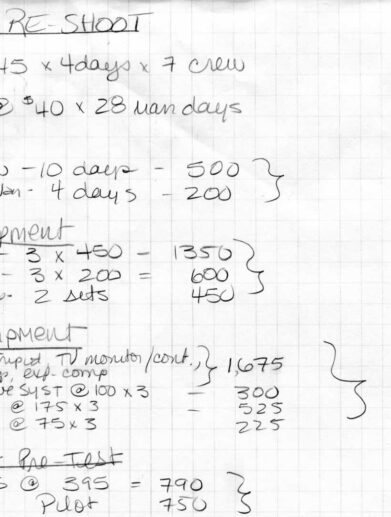 RE-SHOOT
45 x 4days x 7 crew
@ $40 x 28 man days
- 10 days - 500
- 4 days - 200
pment
- 3 x 450 - 1350
- 3 x 200 = 600
- 2 sets 450
ipment
TV monitor/cont., 1,675
exp. comp
syst @ 100 x 3 = 300
@ 175 x 3 = 525
@ 75 x 3 225
Pre-Test
@ 395 = 790
Pilot 750